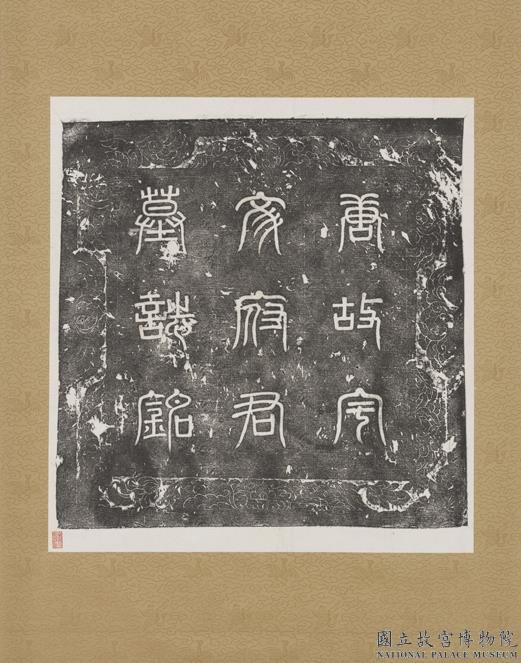 唐故宇
文府君
墓誌銘
國立故宮博物院
NATIONAL PALACE MUSEUM